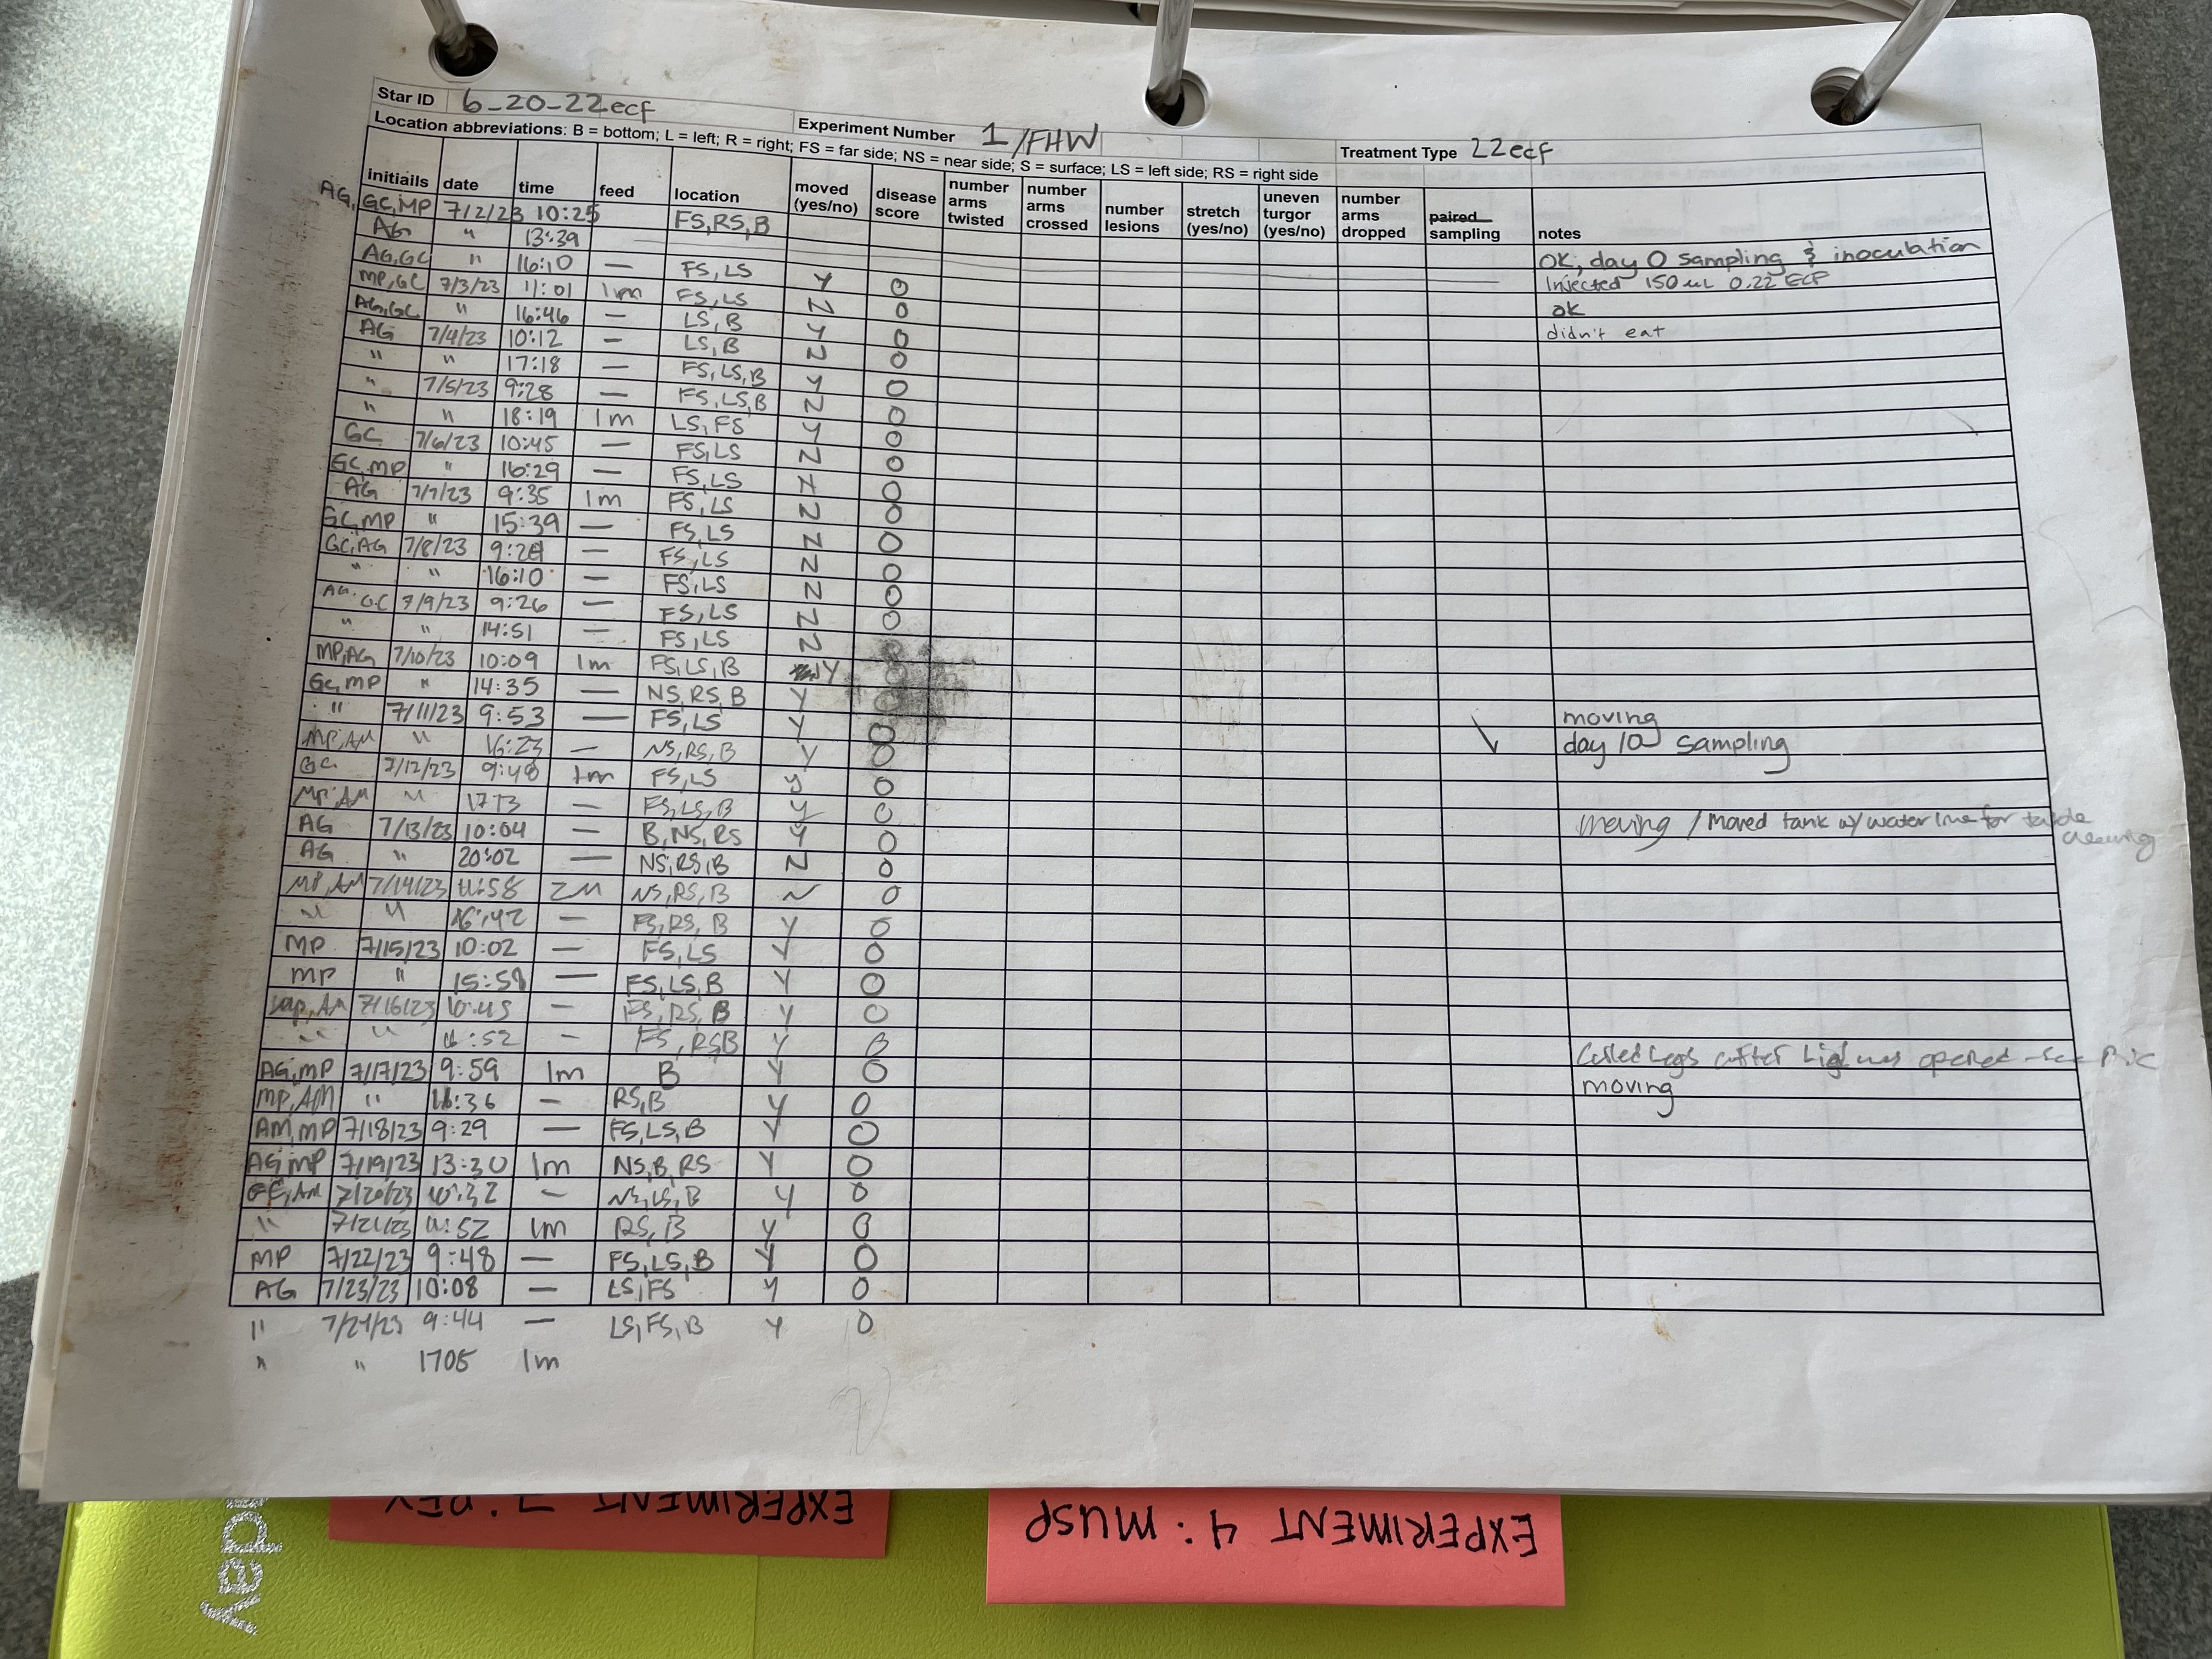 Star ID 6-20-22ecf Experiment Number 1/FHW Treatment Type 22ecf
Location abbreviations: B = bottom; L = left; R = right; FS = far side; NS = near side; S = surface; LS = left side; RS = right side
initiails date time feed location moved (yes/no) disease score number arms twisted number arms crossed number lesions stretch (yes/no) uneven turgor (yes/no) number arms dropped paired sampling notes
AG, GC, MP 7/2/23 10:25 FS, RS, B OK, day 0 sampling & inoculation
AG " 13:39 Injected 150 uL 0.22 ECF
AG, GC " 16:10 — FS, LS Y 0 ok
MP, GC 7/3/23 11:01 1m FS, LS N 0 didn't eat
AG, GC " 16:46 — LS, B Y 0
AG 7/4/23 10:12 — LS, B N 0
" " 17:18 — FS, LS, B Y 0
" 7/5/23 9:28 — FS, LS, B N 0
" " 18:19 1m LS, FS Y 0
GC 7/6/23 10:45 — FS, LS N 0
GC, MP " 16:29 — FS, LS 0
AG 7/7/23 9:35 1m FS, LS N 0
GC, MP " 15:39 — FS, LS N 0
GC, AG 7/8/23 — FS, LS N 0
" " 16:10 — FS, LS N 0
AG, GC 7/9/23 9:26 — FS, LS N 0
" " 14:51 — FS, LS N
MP, AG 7/10/23 10:09 1m FS, LS, B Y
GC, MP " 14:35 — NS, RS, B Y 0 moving
" 7/11/23 9:53 — FS, LS Y 0 day 10 sampling
MP, AM " 16:23 — NS, RS, B Y 0
GC 7/12/23 9:48 1m FS, LS Y 0
MP, AM " — FS, LS, B Y 0 moving / Moved tank w/ water line for cleaning
AG 7/13/23 10:04 — B, NS, RS Y 0
AG " 20:02 — NS, RS, B N 0
MP, AM 7/14/23 11:58 2M NS, RS, B N 0
" " 16:42 — FS, RS, B Y 0
MP 7/15/23 10:02 — FS, LS Y 0
MP " — FS, LS, B Y 0
AM 7/16/23 10:45 — FS, RS, B Y 0
" " 16:52 — FS, RS B Y 0 legs after was opened - see pic
AG, MP 7/17/23 9:59 1m B Y 0 moving
MP, AM " 16:36 — RS, B Y 0
AM, MP 7/18/23 9:29 — FS, LS, B Y 0
AG, MP 7/19/23 13:30 1m NS, B, RS Y 0
GC, AM 7/20/23 10:32 — NS, LS, B Y 0
" 7/21/23 11:52 1m RS, B Y 0
MP 7/22/23 9:48 — FS, LS, B Y 0
AG 7/23/23 10:08 — LS, FS Y 0
" 7/24/23 9:44 — LS, FS, B Y 0
" " 1705 1m
EXPERIMENT 4: MUSP